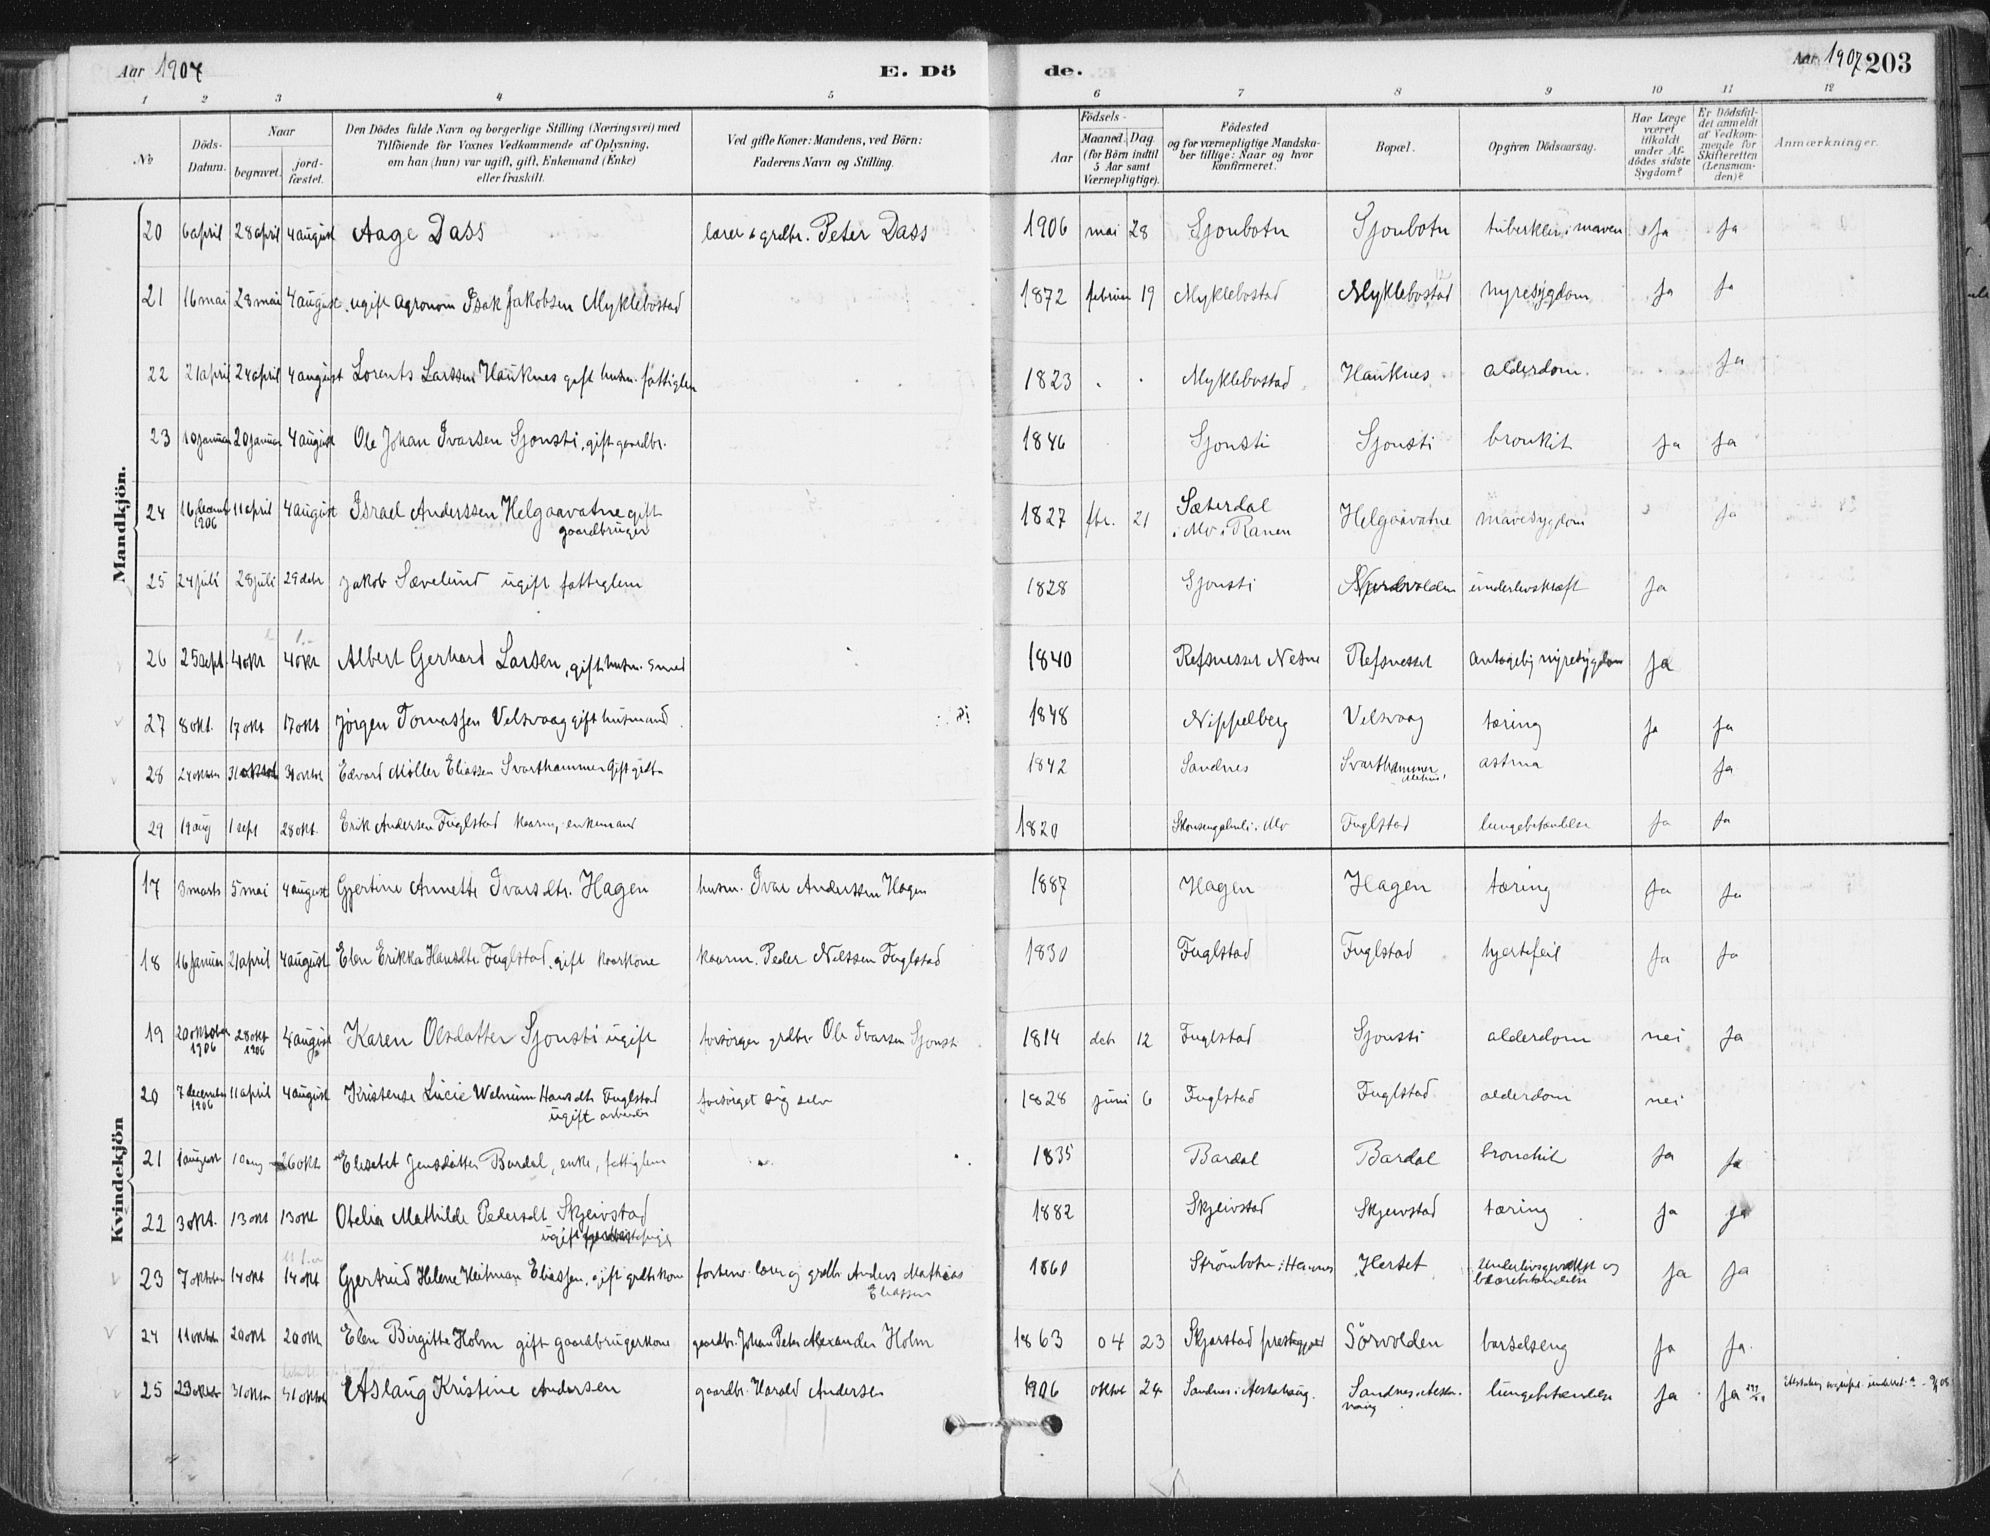 Aar 1907 E. Dö de. Aar 1907 203
1 2 3 4 5 6 7 8 9 10 11 12
No
Döds-Datum.
Naar
begravet.
jord-fæstet.
Den Dödes fulde Navn og borgerlige Stilling (Næringsvei) med
Tilföiende for Voxnes Vedkommende af Oplysning,
om han (hun) var ugift, gift, Enkemand (Enke)
eller fraskilt.
Ved gifte Koner: Mandens, ved Börn:
Faderens Navn og Stilling.
Födsels-
Aar
Maaned. Dag.
(for Börn indtil
5 Aar samt
Værnepligtige).
Födested
og for værnepligtige Mandska-
ber tillige: Naar og hvor
konfirmeret.
Bopæl.
Opgiven Dödsaarsag.
Har Læge
været
tilkaldt
under Af-
dödes sidste
Sygdom?
Er Dödsfal-
det anmeldt
af Vedkom-
mende for
Skifteretten
(Lensman-
den)?
Anmærkninger.
Mandkjön.
20 6 april 28 april 4 august Aage Dass lærer & grdbr. Peter Dass 1906 mai 28 Sjonbotn Sjonbotn tuberkler i maven Ja Ja
21 16 mai 28 mai 4 august ugift agronom Isak Jakobsen Myklebostad 1872 februar 19 Myklebostad Myklebostad nyresygdom Ja Ja
22 21 april 24 april 4 august Lorents Larssen Hauknes gift husm. fattiglem 1823 Myklebostad Hauknes alderdom. Ja
23 10 januar 20 januar 4 august Ole Johan Ivarsen Sjonsti, gift gaardbr. 1846 Sjonsti Sjonsti bronkit Ja Ja
24 16 decemb 1906 11 april 4 august Israel Anderssen Helgaavatne gift
gaardbruger 1827 fbr. 21 Sæterdal
i Mo i Ranen Helgaavatne mavesygdom Ja
25 24 juli 28 juli 29 dcbr Jakob Sævelund ugift fattiglem 1828 Sjonsti underlivskræft Ja
26 25 sept. 4 okt 4 okt Albert Gerhard Larsen, gift husm. smed 1840 Refsnesset Nesne Refsnesset antagelig nyresygdom Ja
27 8 okt. 17 okt 17 okt Jørgen Tomassen Velsvaag gift husmand 1848 Nippelberg Velsvaag tæring Ja Ja
28 24 oktbr 31 oktbr 31 oktbr Edvard Møller Eliassen Svarthammer Gift grdbr 1842 Sandnes Svarthammer astma Ja
29 19 aug 1 sept 28 okt. Erik Andersen Fuglstad kaarm, enkemand 1820 Fuglstad lungebetændelse Ja Ja
Kvindekjön
17 3 marts 5 mai 4 august Gjertine Annette Ivarsdtr. Hagen husm. Ivar Anderssen Hagen 1887 Hagen Hagen tæring Ja Ja
18 16 januar 21 april 4 august Elen Erikka Hansdtr Fuglstad, gift kaarkone kaarm. Peder Nilssen Fuglstad 1830 Fuglstad Fuglstad hjertefeil Ja Ja
19 20 oktober 1906 28 okt 1906 4 august Karen Olsdatter Sjonsti ugift forsørger grdbr. Ole Ivarsen Sjonsti 1814 dcb 12 Fuglstad Sjonsti alderdom nei Ja
20 7 december 1906 11 april 4 august Kristense Lucie Hansdtr Fuglstad
ugift arbeider forsørget sig selv 1828 juni 6 Fuglstad Fuglstad alderdom nei
21 1 august 10 aug 26 okt Elisabet Jensdatter Bardal, enke, fattiglem 1835 Bardal Bardal bronchit Ja Ja
22 3 okt. 13 okt 13 okt Otelia Mathilde Pedersdt Skjeivstad
ugift 1882 Skjeivstad Skjeivstad tæring Ja Ja
23 7 oktober 14 okt 14 okt Gjertrud Helene Heitman Eliassen, gift grdbrkone forhenv. lærer og grdbr Anders Mathias
Eliassen 1860 Strømbotn i Hemnes Herset underlivsgevækst og
blærebetændelse Ja Ja
24 11 oktbr 20 okt 20 okt Elen Birgitte Holm gift gaardbrugerkone gaardbr. Johan Peter Alexander Holm 1863 04 23 Skjerstad prestegjæld Sörvolden barselseng Ja Ja
25 29 oktbr 31 oktbr 31 oktbr Aslaug Kristine Andersen gaardbr. Harald Andersen 1906 oktbr 24 Sandnes i Alstahaug. Sandnes i Alsta-
haug lungebetændelse Ja Ja